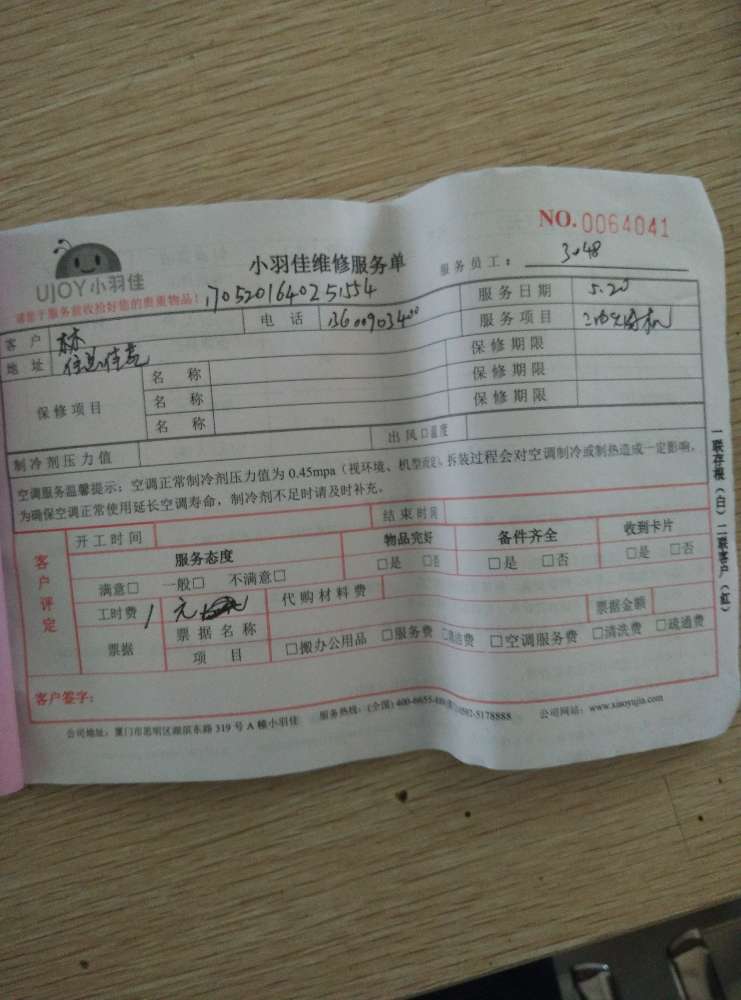 NO.0064041
UJOY小羽佳
小羽佳维修服务单
服务员工： 3048
请您于服务前收拾好您的贵重物品！
17052016402 51554
客户 林 电话 服务日期 5.20
地址 服务项目
保修项目 名称 保修期限
名称 保修期限
名称 保修期限
制冷剂压力值 出风口温度
空调服务温馨提示：空调正常制冷剂压力值为0.45mpa（视环境、机型而定），拆装过程会对空调制冷或制热造成一定影响。
为确保空调正常使用延长空调寿命，制冷剂不足时请及时补充。
一联存根（白） 二联客户（红）
客户评定
开工时间 结束时间
服务态度 物品完好 备件齐全 收到卡片
满意□ 一般□ 不满意□ □是 □否 □是 □否 □是 □否
工时费 1元 代购材料费
票据 票据名称 票据金额
项目 □搬办公用品 □服务费 □清洁费 □空调服务费 □清洗费 □疏通费
客户签字：
公司地址：厦门市思明区湖滨东路319号A幢小羽佳 服务热线：(全国)400-6655- 0592-5178888 公司网站：www.xiaoyujia.com